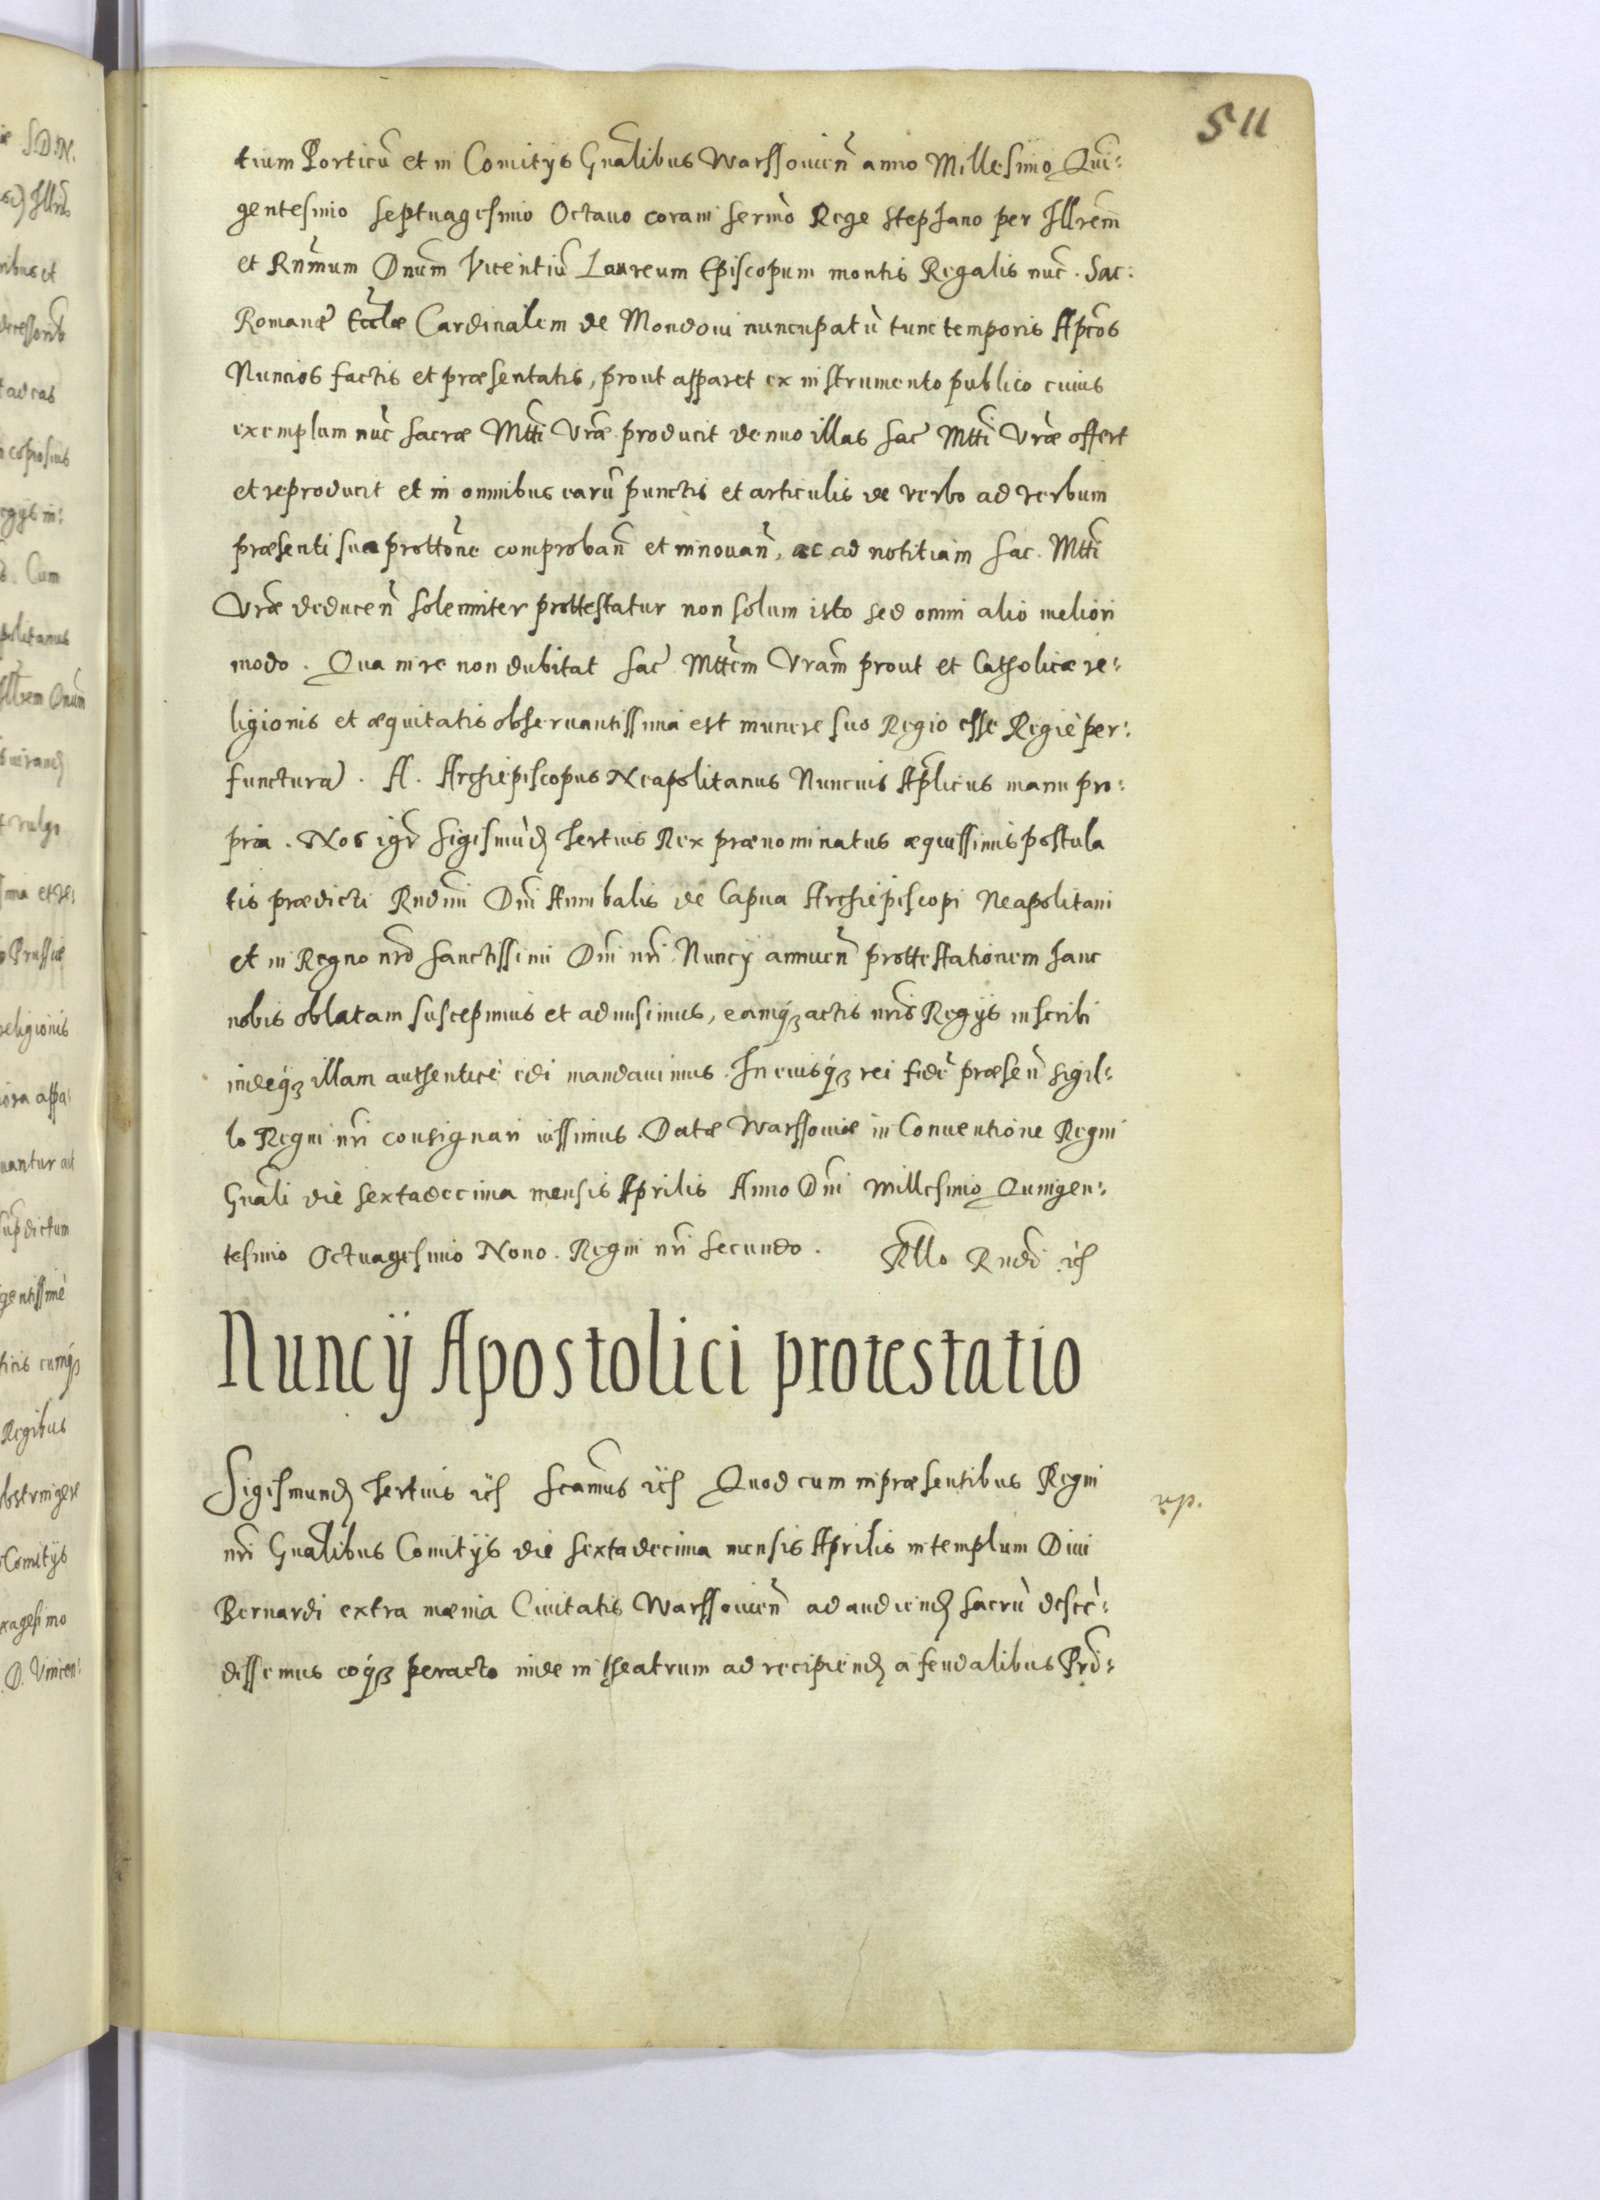 511
tium Porticũ et in Comitÿs Gnãlibus Warssouieñ anno Millesimo Qui:
gentesimo septuagesimo Octauo coram sermo Rege stephano per Illrem
et Rnmum Dnum Vicentiũ Laureum Episcopum montis Regalis nuc. Sac:
Romanæ Ecclæ Cardinalem de Mondoui nuncupatũ tunc temporis Apcos
Nuncios factis et præsentatis, prout apparet ex instrumento publico cuius
exemplum nuc sacræ Mtti Vræ producit denuo illas sac Mtti Vræ offert
et reproducit et in omnibus earũ punctis et articulis de verbo ad verbum
præsenti sua prottone comprobañ et innouañ, ac ad notitiam sac. Mtti
Vræ deduceñ solemniter prottestatur non solum isto sed omni alio meliori
modo. Qua in re non dubitat sac Mttem Vram prout et Catholicæ re:
ligionis et æquitatis obseruantissima est munere suo Regio esse Regiè per:
functura. A. Archiepiscopus Neapolitanus Nuncius Aplicus manu pro:
pria. Nos igr Sigismũd9 tertius Rex prænominatus æquissimis postula
tis prædicti Rndmi Dni Annibalis de Capua Archiepiscopi Neapolitani
et in Regno nro sanctissimi Dni nri Nuncÿ annueñ prottestationem hanc
nobis oblatam suscepimus et admisimus, eamq3 actis nris Regÿs inscribi
indeq3 illam authenticè edi mandauimus. In cuiusq3 rei fidẽ præseñ sigil:
lo Regni nri consignari iussimus. Datæ Warssouiæ in Conuentione Regni
Gnali die sextadecima mensis Aprilis Anno Dni Millesimo Quingen:
tesimo Octuagesimo Nono. Regni nri secundo. Rllo Rndi
Nuncÿ Apostolici protestatio
Sigismund9 tertius Scamus Quod cum in præsentibus Regni
nri Gnalibus Comitÿs die sextadecima mensis Aprilis in templum Diui
Bernardi extra mænia Ciuitatis Warssouieñ ad audiend9 sacrũ descẽ:
dissemus eoq3 peracto inde in theatrum ad recipiend9 a feudalibus Prd: